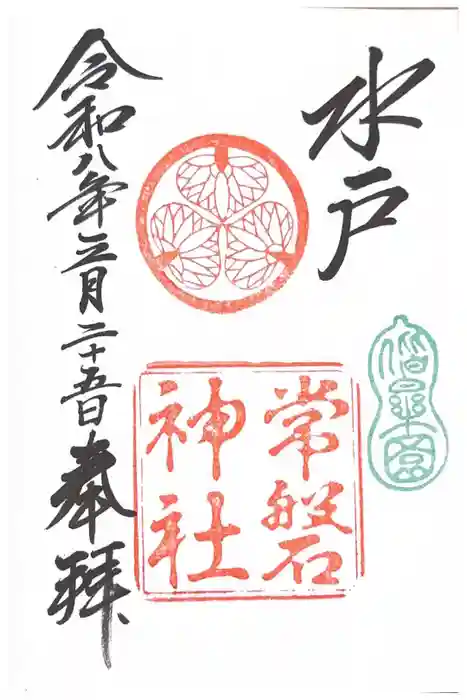 水戸
偕楽園
常磐
神社
令和八年三月二十五日奉拝